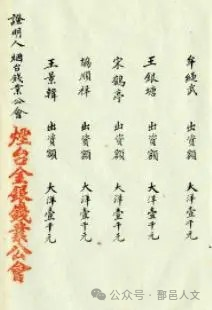 牟绳武　出資額　大洋壹千元
王銀塘　出資額　大洋壹千元
宋鶴亭　出資額　大洋壹千元
協順祥　出資額　大洋壹千元
王景韓　出資額　大洋壹千元
證明人 烟台錢業公會
煙台金銀錢業公會
公众号·鄯邑人文